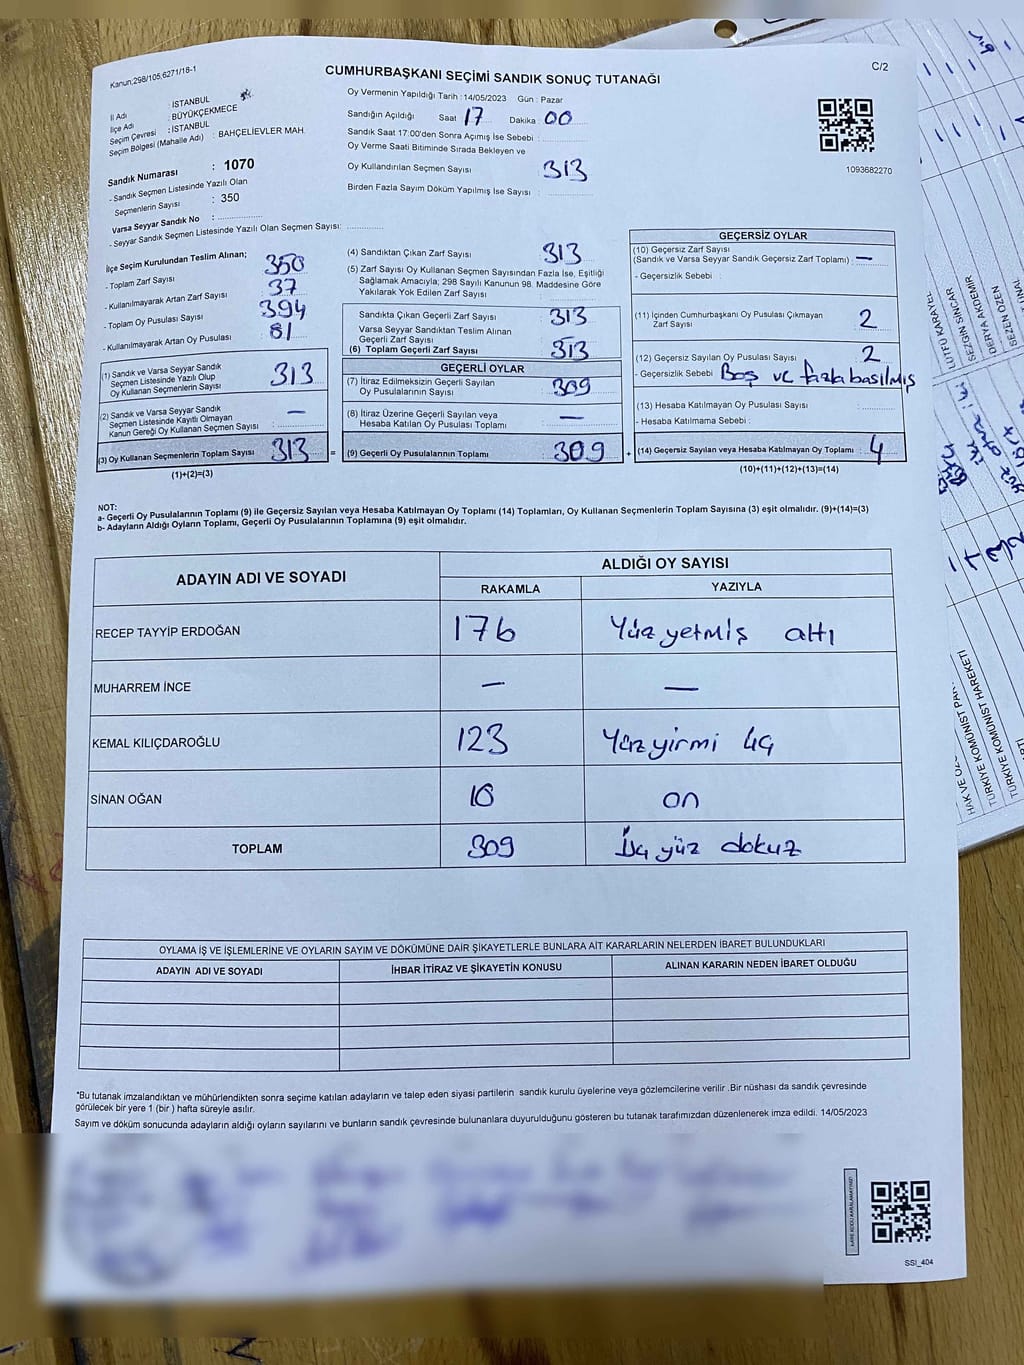 Kanun:298/105,6271/18-1
CUMHURBAŞKANI SEÇİMİ SANDIK SONUÇ TUTANAĞI
C/2
İl Adı : İSTANBUL
İlçe Adı : BÜYÜKÇEKMECE
Seçim Çevresi : İSTANBUL
Seçim Bölgesi (Mahalle Adı) : BAHÇELİEVLER MAH.
Sandık Numarası : 1070
- Sandık Seçmen Listesinde Yazılı Olan
Seçmenlerin Sayısı : 350
Varsa Seyyar Sandık No : ....................
- Seyyar Sandık Seçmen Listesinde Yazılı Olan Seçmen Sayısı: ............
Oy Vermenin Yapıldığı Tarih :14/05/2023 Gün : Pazar
Sandığın Açıldığı Saat 17 Dakika : 00
Sandık Saat 17:00'den Sonra Açımış İse Sebebi :
Oy Verme Saati Bitiminde Sırada Bekleyen ve
Oy Kullandırılan Seçmen Sayısı 313
Birden Fazla Sayım Döküm Yapılmış İse Sayısı :
1093682270
İlçe Seçim Kurulundan Teslim Alınan;
- Toplam Zarf Sayısı : 350
- Kullanılmayarak Artan Zarf Sayısı : 37
- Toplam Oy Pusulası Sayısı : 394
- Kullanılmayarak Artan Oy Pusulası : 81
(1) Sandık ve Varsa Seyyar Sandık
Seçmen Listesinde Yazılı Olup
Oy Kullanan Seçmenlerin Sayısı : 313
(2) Sandık ve Varsa Seyyar Sandık
Seçmen Listesinde Kayıtlı Olmayan
Kanun Gereği Oy Kullanan Seçmen Sayısı : —
(3) Oy Kullanan Seçmenlerin Toplam Sayısı : 313 =
(1)+(2)=(3)
(4) Sandıktan Çıkan Zarf Sayısı : 313
(5) Zarf Sayısı Oy Kullanan Seçmen Sayısından Fazla İse, Eşitliği
Sağlamak Amacıyla; 298 Sayılı Kanunun 98. Maddesine Göre
Yakılarak Yok Edilen Zarf Sayısı :
Sandıkta Çıkan Geçerli Zarf Sayısı : 313
Varsa Seyyar Sandıktan Teslim Alınan
Geçerli Zarf Sayısı :
(6) Toplam Geçerli Zarf Sayısı : 313
GEÇERLİ OYLAR
(7) İtiraz Edilmeksizin Geçerli Sayılan
Oy Pusulalarının Sayısı : 309
(8) İtiraz Üzerine Geçerli Sayılan veya
Hesaba Katılan Oy Pusulası Toplamı : —
(9) Geçerli Oy Pusulalarının Toplamı : 309 +
GEÇERSİZ OYLAR
(10) Geçersiz Zarf Sayısı
(Sandık ve Varsa Seyyar Sandık Geçersiz Zarf Toplamı) : —
- Geçersizlik Sebebi :
(11) İçinden Cumhurbaşkanı Oy Pusulası Çıkmayan
Zarf Sayısı : 2
(12) Geçersiz Sayılan Oy Pusulası Sayısı : 2
- Geçersizlik Sebebi : Boş ve fazla basılmış
(13) Hesaba Katılmayan Oy Pusulası Sayısı :
- Hesaba Katılmama Sebebi :
(14) Geçersiz Sayılan veya Hesaba Katılmayan Oy Toplamı : 4
(10)+(11)+(12)+(13)=(14)
NOT:
a- Geçerli Oy Pusulalarının Toplamı (9) ile Geçersiz Sayılan veya Hesaba Katılmayan Oy Toplamı (14) Toplamları, Oy Kullanan Seçmenlerin Toplam Sayısına (3) eşit olmalıdır. (9)+(14)=(3)
b- Adayların Aldığı Oyların Toplamı, Geçerli Oy Pusulalarının Toplamına (9) eşit olmalıdır.
ADAYIN ADI VE SOYADI ALDIĞI OY SAYISI
RAKAMLA YAZIYLA
RECEP TAYYİP ERDOĞAN 176 Yüz yetmiş altı
MUHARREM İNCE — —
KEMAL KILIÇDAROĞLU 123 Yüz yirmi üç
SİNAN OĞAN 10 on
TOPLAM 309 Üç yüz dokuz
OYLAMA İŞ VE İŞLEMLERİNE VE OYLARIN SAYIM VE DÖKÜMÜNE DAİR ŞİKAYETLERLE BUNLARA AİT KARARLARIN NELERDEN İBARET BULUNDUKLARI
ADAYIN ADI VE SOYADI İHBAR İTİRAZ VE ŞİKAYETİN KONUSU ALINAN KARARIN NEDEN İBARET OLDUĞU
*Bu tutanak imzalandıktan ve mühürlendikten sonra seçime katılan adayların ve talep eden siyasi partilerin sandık kurulu üyelerine veya gözlemcilerine verilir .Bir nüshası da sandık çevresinde
görülecek bir yere 1 (bir ) hafta süreyle asılır.
Sayım ve döküm sonucunda adayların aldığı oyların sayılarını ve bunların sandık çevresinde bulunanlara duyurulduğunu gösteren bu tutanak tarafımızdan düzenlenerek imza edildi. 14/05/2023
KARE KODU KARALAMAYINIZ!
SSI_404
LÜTFÜ KARAYEL
SEZGİN SİNCAR
DERYA AKDEMİR
SEZEN ÖZEN
TÜRKİYE KOMÜNİST HAREKETİ